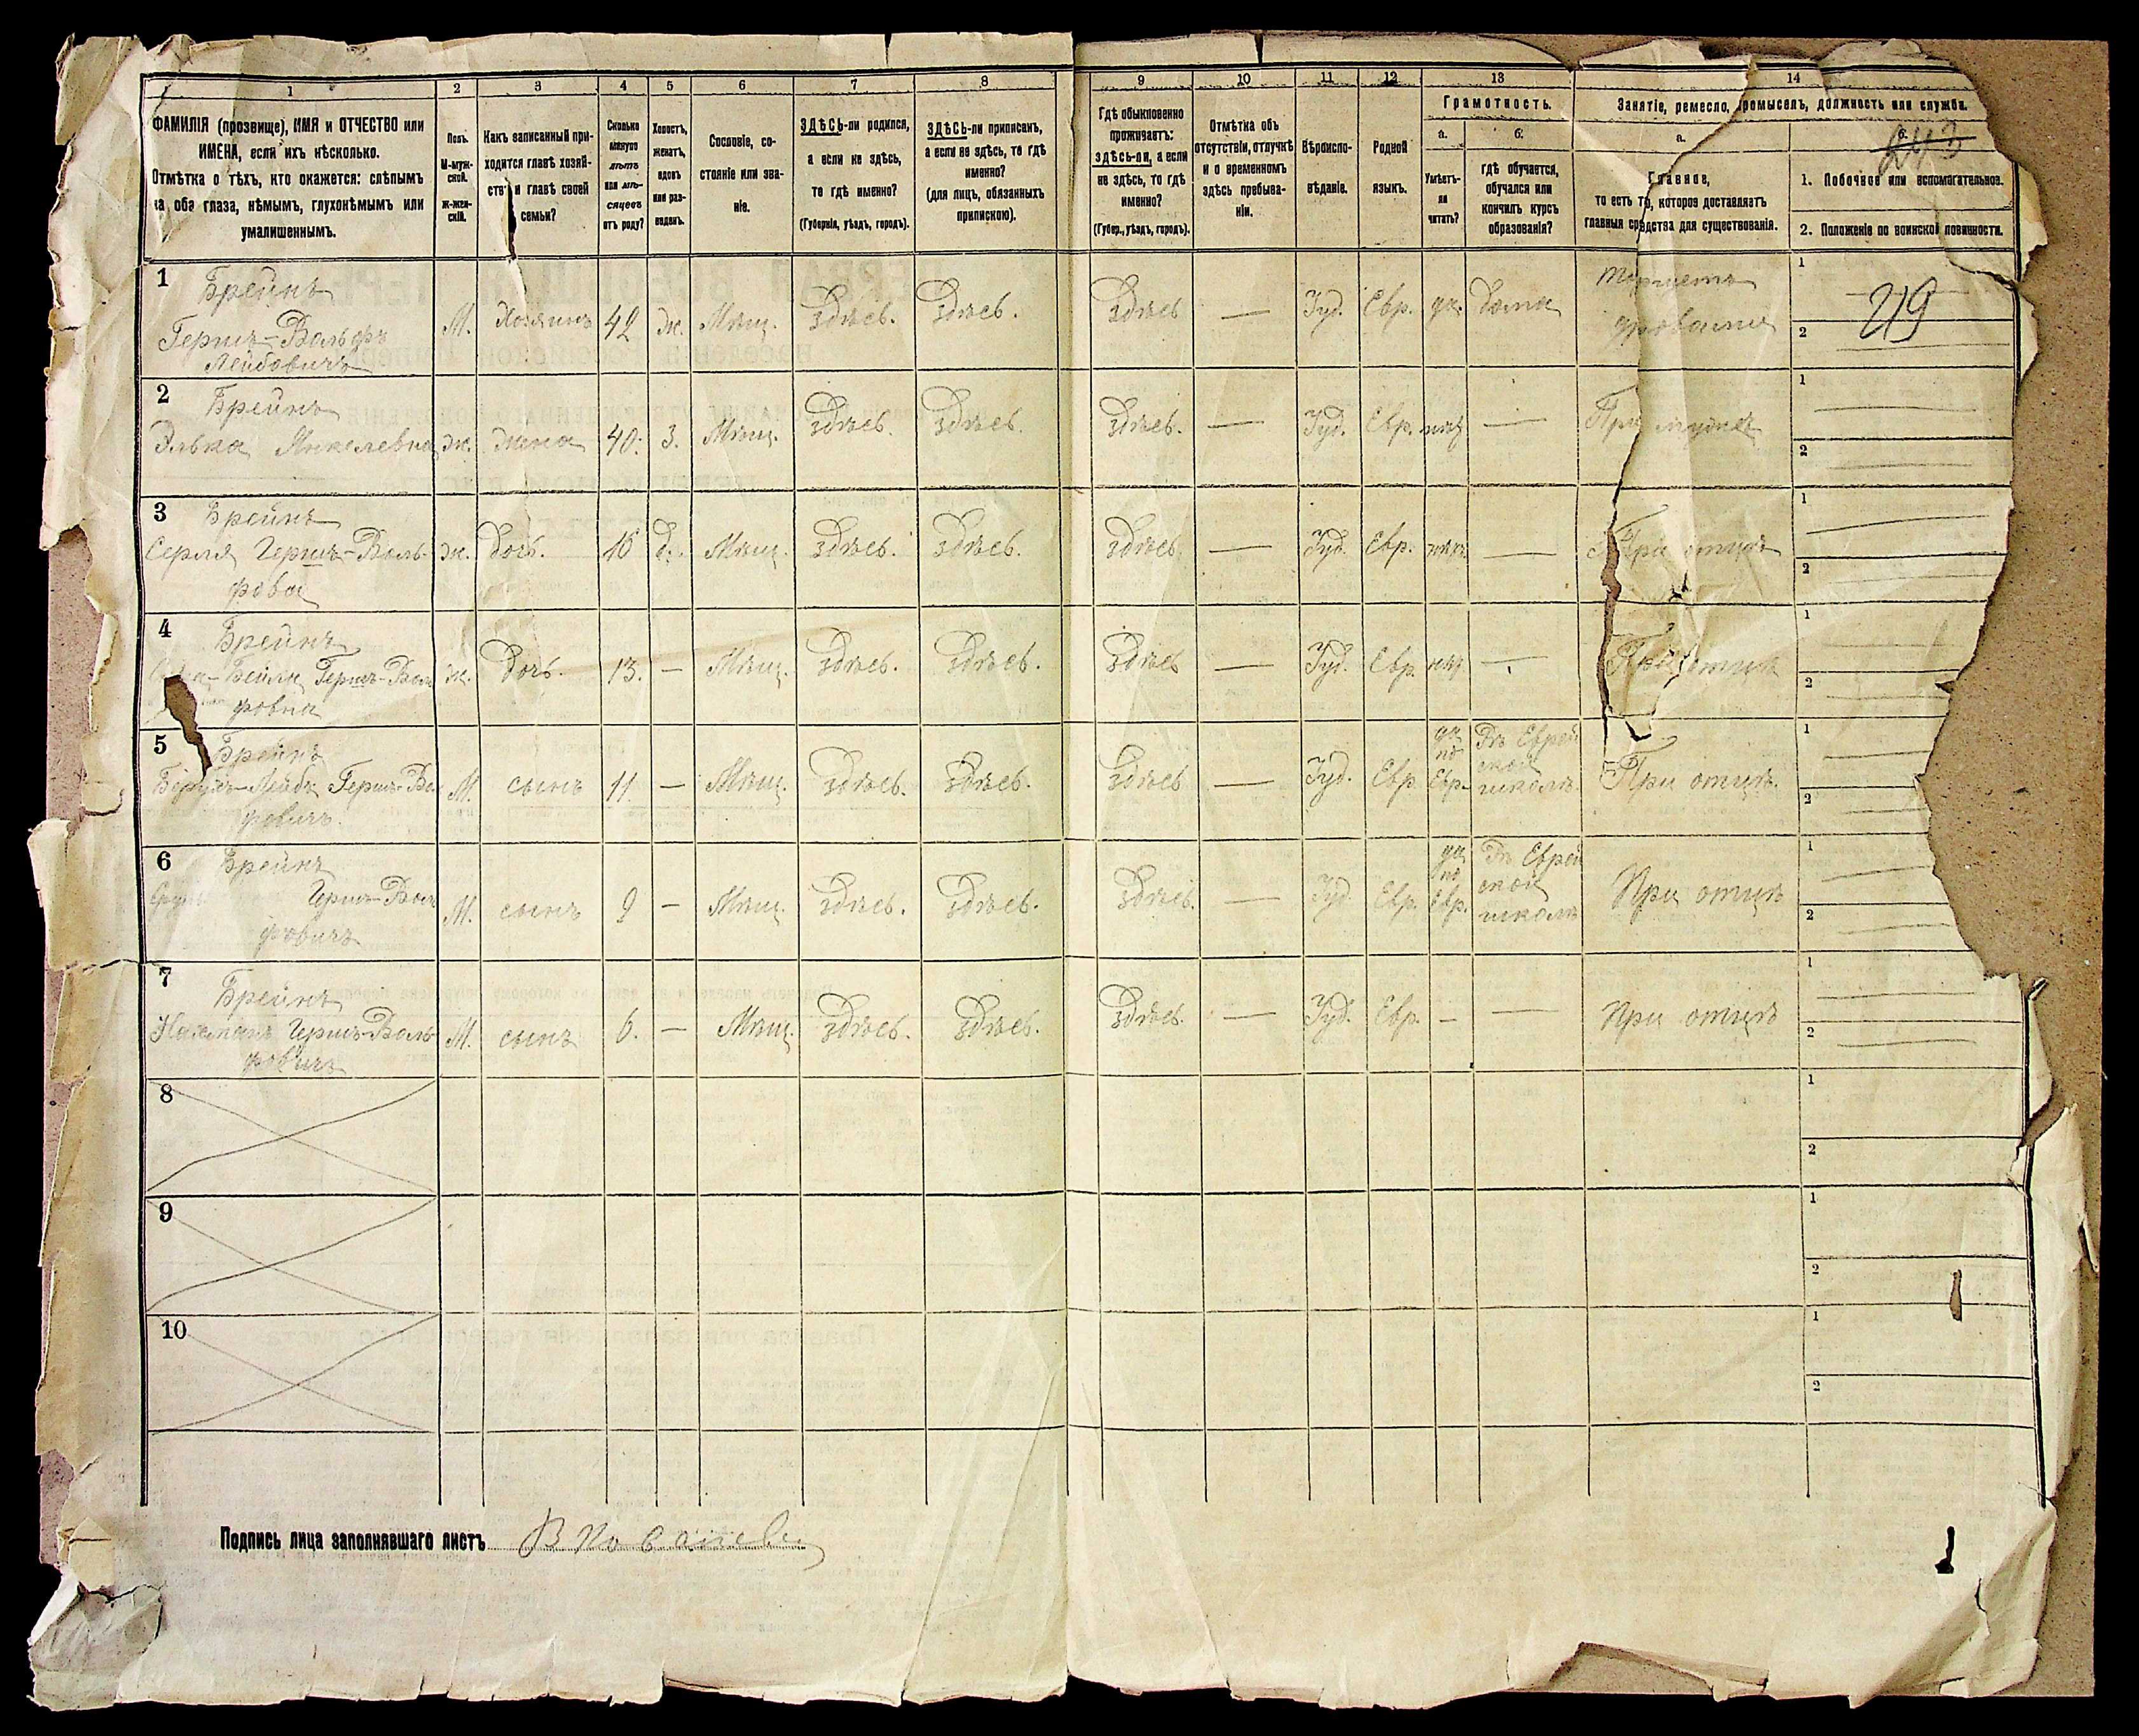 1 2 3 4 5 6 7 8 9 10 11 12 13 14
ФАМИЛІЯ (прозвище), ИМЯ и ОТЧЕСТВО или
ИМЕНА, если ихъ нѣсколько.
Отмѣтка о тѣхъ, кто окажется: слѣпымъ
на оба глаза, нѣмымъ, глухонѣмымъ или
умалишеннымъ.
Полъ.
М-муж-
ской.
Ж-жен-
скій.
Какъ записанный при-
ходится главѣ хозяй-
ства и главѣ своей
семьи?
Сколько
минуло
лѣтъ
или мѣ-
сяцевъ
отъ роду?
Холостъ,
женатъ,
вдовъ
или раз-
веденъ.
Сословіе, со-
стояніе или зва-
ніе.
ЗДѢСЬ-ли родился,
а если не здѣсь,
то гдѣ именно?
(Губернія, уѣздъ, городъ).
ЗДѢСЬ-ли приписанъ,
а если не здѣсь, то гдѣ
именно?
(для лицъ, обязанныхъ
припискою).
Гдѣ обыкновенно
проживаетъ:
здѣсь-ли, а если
не здѣсь, то гдѣ
именно?
(Губер., уѣздъ, городъ).
Отмѣтка объ
отсутствіи, отлучкѣ
и о временномъ
здѣсь пребыва-
ніи.
Вѣроиспо-
вѣданіе.
Родной
языкъ.
Грамотность.
а.
Умѣетъ-
ли
читать?
б.
гдѣ обучается,
обучался или
кончилъ курсъ
образованія?
Занятіе, ремесло, промыселъ, должность или служба.
а.
Главное,
то есть то, которое доставляетъ
главныя средства для существованія.
б.
243
1. Побочное или вспомагательное.
2. Положеніе по воинской повинности.
1 Брейнъ
Гершъ-Вольфъ
Лейбовичъ
М. Хозяинъ 42 ж. Мѣщ. Здѣсь. Здѣсь. Здѣсь — Іуд. Евр. да. дома
Торгуетъ
дровами
1
2
219
2 Брейнъ
Элька Янкелевна ж. жена 40. з. Мѣщ. Здѣсь. Здѣсь. Здѣсь. — Іуд. Евр. нѣтъ — При мужѣ
1
2
3 Брейнъ
Серля Гершъ-Воль-
фовна
ж. Дочь. 16 д. Мѣщ. Здѣсь. Здѣсь. Здѣсь. — Іуд. Евр. нѣтъ — При отцѣ
1
2
4 Брейнъ
Бейла Гершъ-Воль
фовна
ж. Дочь. 13. — Мѣщ. Здѣсь. Здѣсь. Здѣсь — Іуд. Евр. нѣтъ — При отцѣ
1
2
5 Брейнъ
Лейба Гершъ-Воль
фовичъ.
М. сынъ 11 — Мѣщ. Здѣсь. Здѣсь. Здѣсь — Іуд. Евр.
да
по
Евр.
Въ Еврей
ской
школѣ.
При отцѣ.
1
2
6 Брейнъ
Гершъ-Воль
фовичъ
М. сынъ 9 — Мѣщ. Здѣсь. Здѣсь. Здѣсь. — Іуд. Евр.
да
по
Евр.
Въ Еврей
ской
школѣ
При отцѣ
1
2
7 Брейнъ
Нахманъ Гершъ-Воль
фовичъ
М. сынъ 6. — Мѣщ. Здѣсь. Здѣсь. Здѣсь. — Іуд. Евр. — — При отцѣ
1
2
8
1
2
9
1
2
10
1
2
Подпись лица заполнявшаго листъ